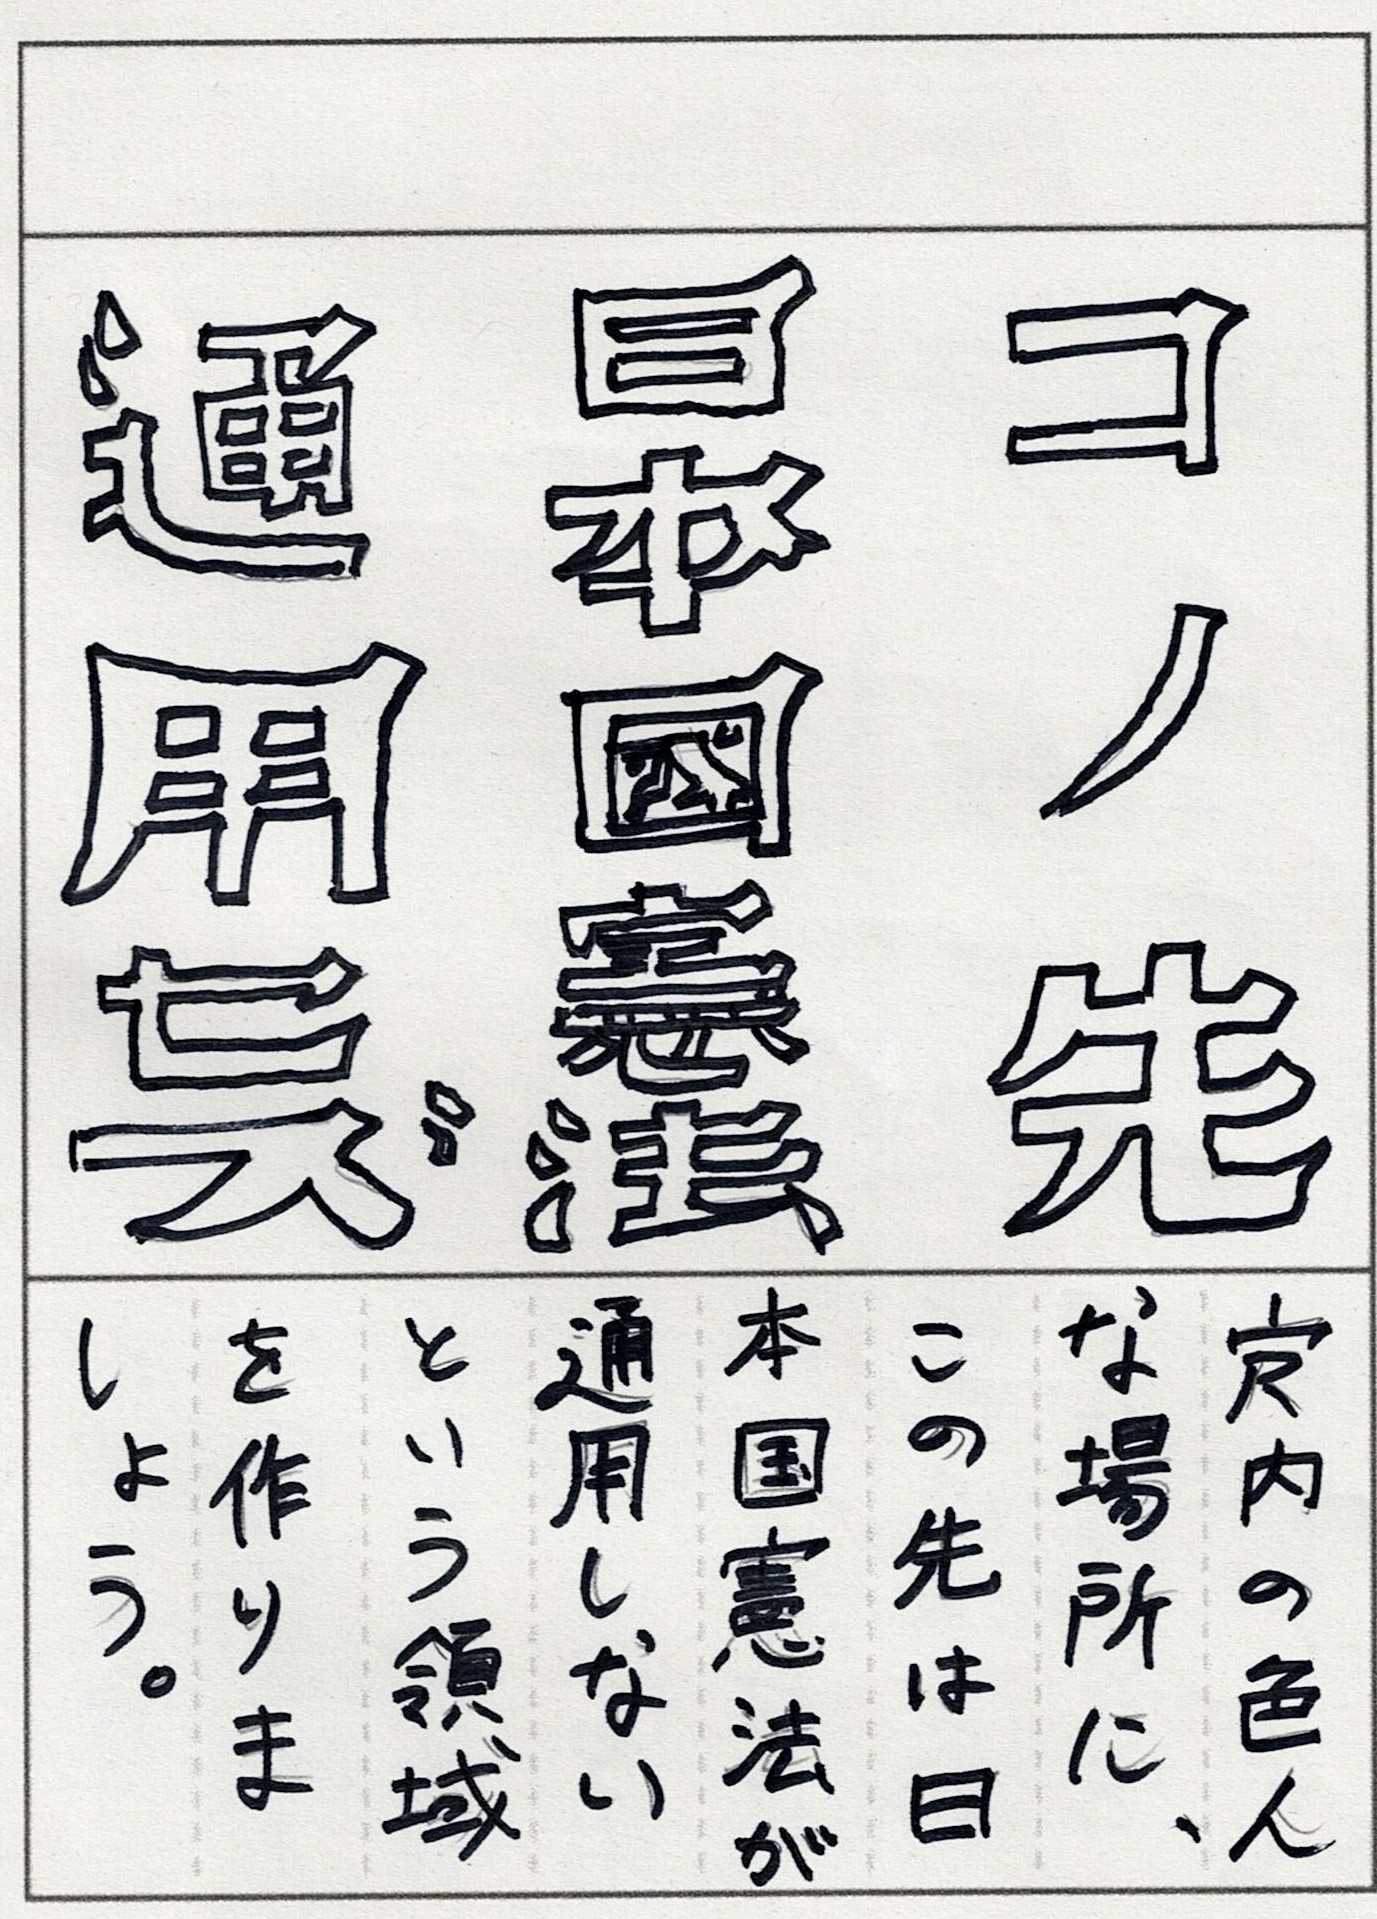 コノ先
日本國憲法
通用セズ
内の色ん
な場所に、
この先は日
本国憲法が
通用しない
という領域
を作りま
しょう。